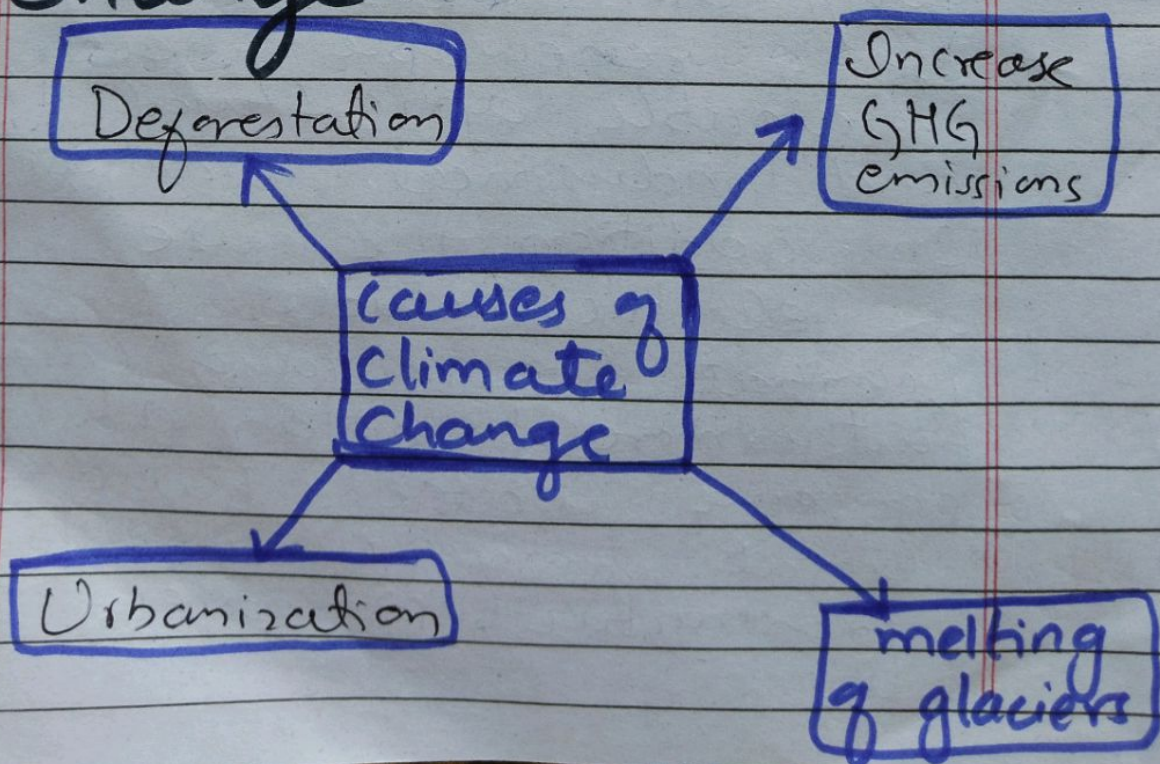 Change
Deforestation
Increase
GHG
emissions
Causes of
Climate
Change
Urbanization
melting
of glaciers